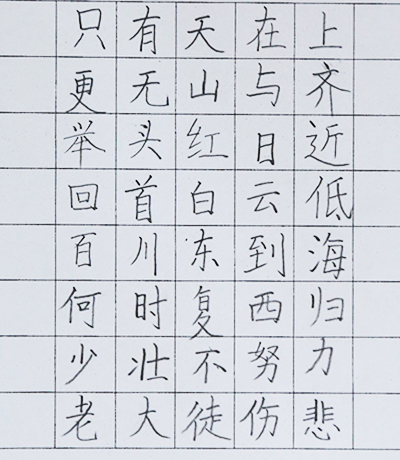 只有天在上
更无山与齐
举头红日近
回首白云低
百川东到海
何时复西归
少壮不努力
老大徒伤悲